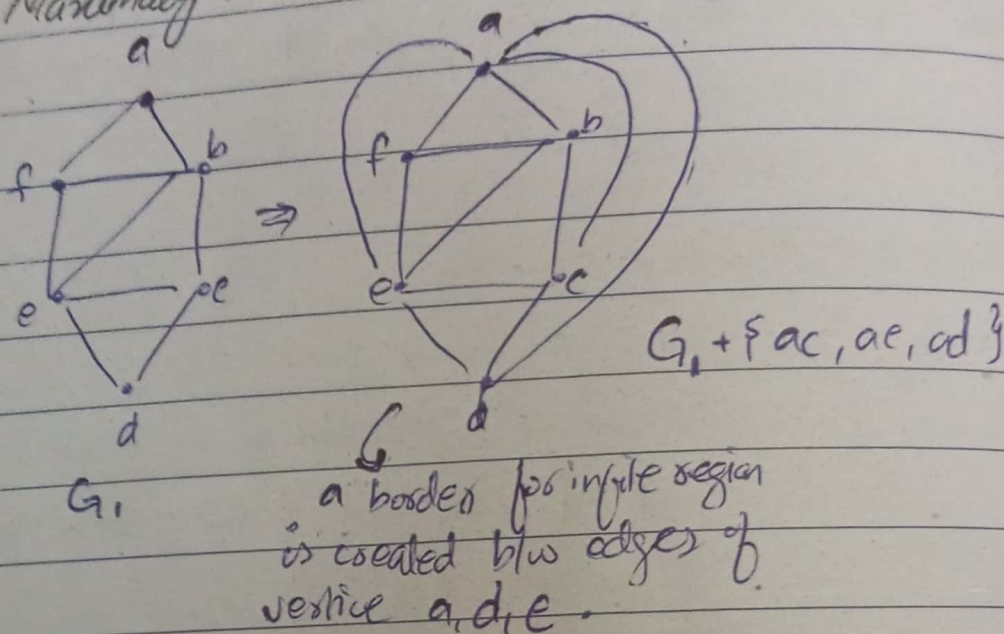 a
a
b
b
f
f
⇒
e
c
e
c
G₁ + { ac, ae, ad }
d
d
G₁
a border for infite region
is created b/w edges of
vertice a, d, e .